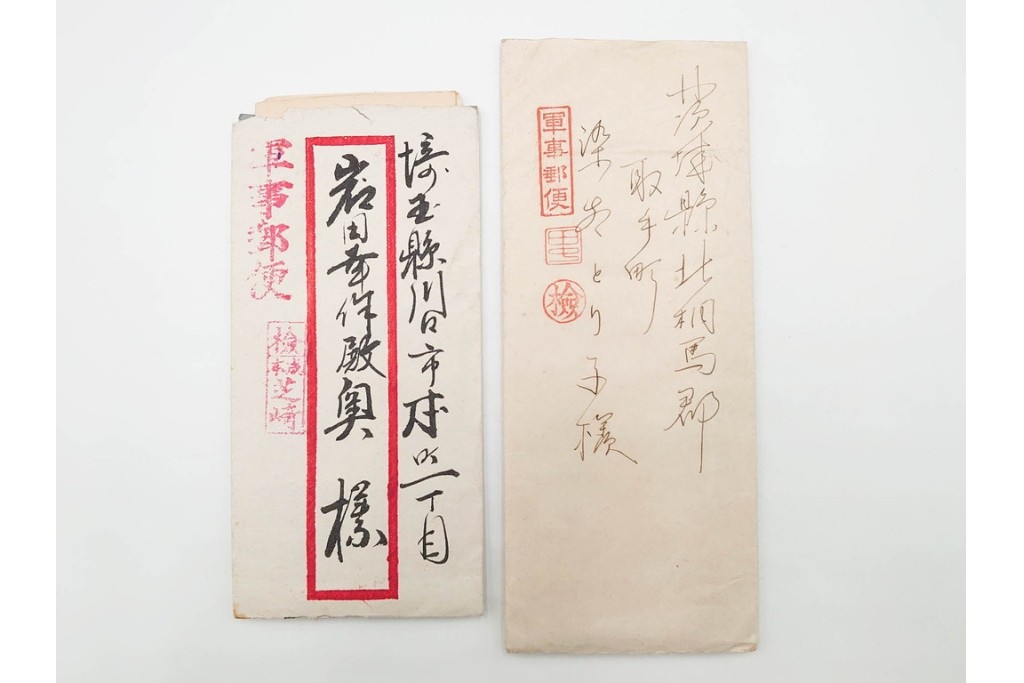 埼玉縣川口市本町一丁目
岩田幸作殿奥 様
軍事郵便
検 芝崎
茨城縣北相馬郡
取手町
染 とり子様
軍事郵便
検